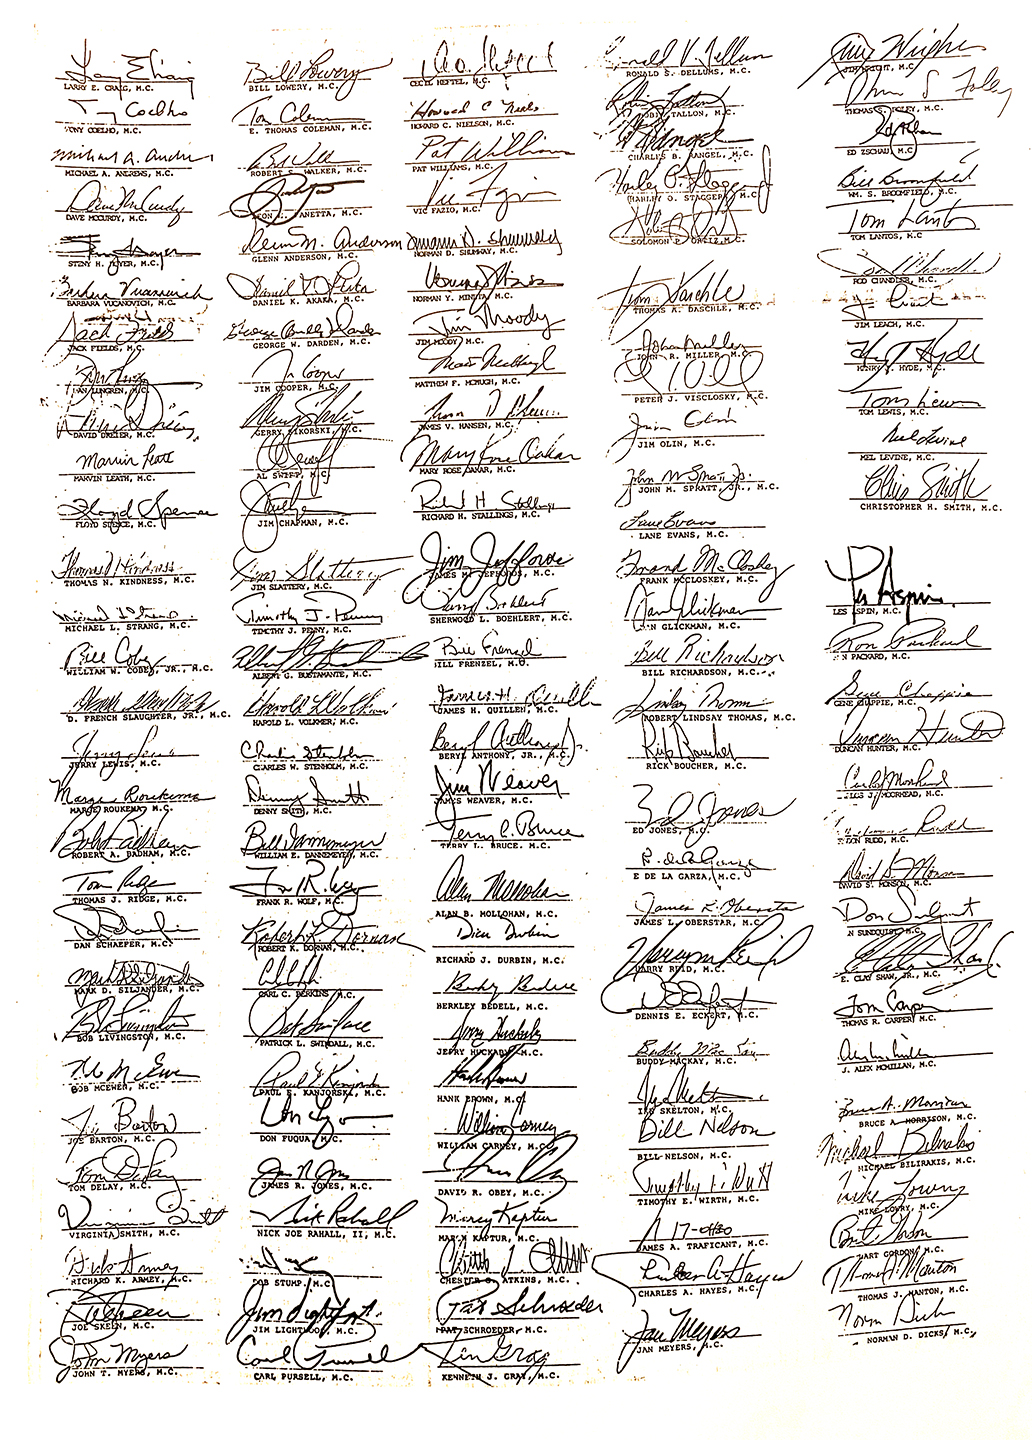 LARRY E. CRAIG, M.C.
TONY COELHO, M.C.
MICHAEL A. ANDREWS, M.C.
DAVE MCCURDY, M.C.
STENY H. HOYER, M.C.
BARBARA VUCANOVICH, M.C.
JACK FIELDS, M.C.
DAN LUNGREN, M.C.
DAVID DREIER, M.C.
MARVIN LEATH, M.C.
FLOYD SPENCE, M.C.
THOMAS N. KINDNESS, M.C.
MICHAEL L. STRANG, M.C.
WILLIAM W. COBEY, JR., M.C.
D. FRENCH SLAUGHTER, JR., M.C.
JERRY LEWIS, M.C.
MARGE ROUKEMA, M.C.
ROBERT A. BADHAM, M.C.
THOMAS J. RIDGE, M.C.
DAN SCHAEFER, M.C.
MARK D. SILJANDER, M.C.
BOB LIVINGSTON, M.C.
BOB MCEWEN, M.C.
JOE BARTON, M.C.
TOM DELAY, M.C.
VIRGINIA SMITH, M.C.
RICHARD K. ARMEY, M.C.
JOE SKEEN, M.C.
JOHN T. MYERS, M.C.
BILL LOWERY, M.C.
E. THOMAS COLEMAN, M.C.
ROBERT S. WALKER, M.C.
LEON E. PANETTA, M.C.
GLENN ANDERSON, M.C.
DANIEL K. AKAKA, M.C.
GEORGE W. DARDEN, M.C.
JIM COOPER, M.C.
GERRY SIKORSKI, M.C.
AL SWIFT, M.C.
JIM CHAPMAN, M.C.
JIM SLATTERY, M.C.
TIMOTHY J. PENNY, M.C.
ALBERT G. BUSTAMANTE, M.C.
HAROLD L. VOLKMER, M.C.
CHARLES W. STENHOLM, M.C.
DENNY SMITH, M.C.
WILLIAM E. DANNEMEYER, M.C.
FRANK R. WOLF, M.C.
ROBERT K. DORNAN, M.C.
CARL C. PERKINS, M.C.
PATRICK L. SWINDALL, M.C.
PAUL E. KANJORSKI, M.C.
DON FUQUA, M.C.
JAMES R. JONES, M.C.
NICK JOE RAHALL, II, M.C.
BOB STUMP, M.C.
JIM LIGHTFOOT, M.C.
CARL PURSELL, M.C.
CECIL HEFTEL, M.C.
HOWARD C. NIELSON, M.C.
PAT WILLIAMS, M.C.
VIC FAZIO, M.C.
NORMAN D. SHUMWAY, M.C.
NORMAN Y. MINETA, M.C.
JIM MOODY, M.C.
MATTHEW F. MCHUGH, M.C.
JAMES V. HANSEN, M.C.
MARY ROSE OAKAR, M.C.
RICHARD H. STALLINGS, M.C.
JAMES M. JEFFORDS, M.C.
SHERWOOD L. BOEHLERT, M.C.
BILL FRENZEL, M.C.
JAMES H. QUILLEN, M.C.
BERYL ANTHONY, JR., M.C.
JAMES WEAVER, M.C.
TERRY L. BRUCE, M.C.
ALAN B. MOLLOHAN, M.C.
RICHARD J. DURBIN, M.C.
BERKLEY BEDELL, M.C.
JERRY HUCKABY, M.C.
HANK BROWN, M.C.
WILLIAM CARNEY, M.C.
DAVID R. OBEY, M.C.
MARCY KAPTUR, M.C.
CHESTER G. ATKINS, M.C.
PAT SCHROEDER, M.C.
KENNETH J. GRAY, M.C.
RONALD S. DELLUMS, M.C.
ROBIN TALLON, M.C.
CHARLES B. RANGEL, M.C.
HARLEY O. STAGGERS
SOLOMON P. ORTIZ, M.C.
THOMAS A. DASCHLE, M.C.
JOHN R. MILLER, M.C.
PETER J. VISCLOSKY, M.C.
JIM OLIN, M.C.
JOHN M. SPRATT, JR., M.C.
LANE EVANS, M.C.
FRANK MCCLOSKEY, M.C.
DAN GLICKMAN, M.C.
BILL RICHARDSON, M.C.
ROBERT LINDSAY THOMAS, M.C.
RICK BOUCHER, M.C.
ED JONES, M.C.
E DE LA GARZA, M.C.
JAMES L. OBERSTAR, M.C.
HARRY REID, M.C.
DENNIS E. ECKERT, M.C.
BUDDY MACKAY, M.C.
IKE SKELTON, M.C.
BILL NELSON, M.C.
TIMOTHY E. WIRTH, M.C.
JAMES A. TRAFICANT, M.C.
CHARLES A. HAYES, M.C.
JAN MEYERS, M.C.
JIM WRIGHT, M.C.
THOMAS S. FOLEY, M.C.
ED ZSCHAU, M.C.
WM. S. BROOMFIELD, M.C.
TOM LANTOS, M.C
ROD CHANDLER, M.C.
JIM LEACH, M.C.
HENRY J. HYDE, M.C.
TOM LEWIS, M.C.
MEL LEVINE, M.C.
CHRISTOPHER H. SMITH, M.C.
LES ASPIN, M.C.
RON PACKARD, M.C.
GENE CHAPPIE, M.C.
DUNCAN HUNTER, M.C.
CARLOS J. MOORHEAD, M.C.
ELDON RUDD, M.C.
DAVID S. MONSON, M.C.
DON SUNDQUIST, M.C.
E. CLAY SHAW, JR., M.C.
THOMAS R. CARPER, M.C.
J. ALEX MCMILLAN, M.C.
BRUCE A. MORRISON, M.C.
MICHAEL BILIRAKIS, M.C.
MIKE LOWRY, M.C.
BART GORDON, M.C.
THOMAS J. MANTON, M.C.
NORMAN D. DICKS, M.C.